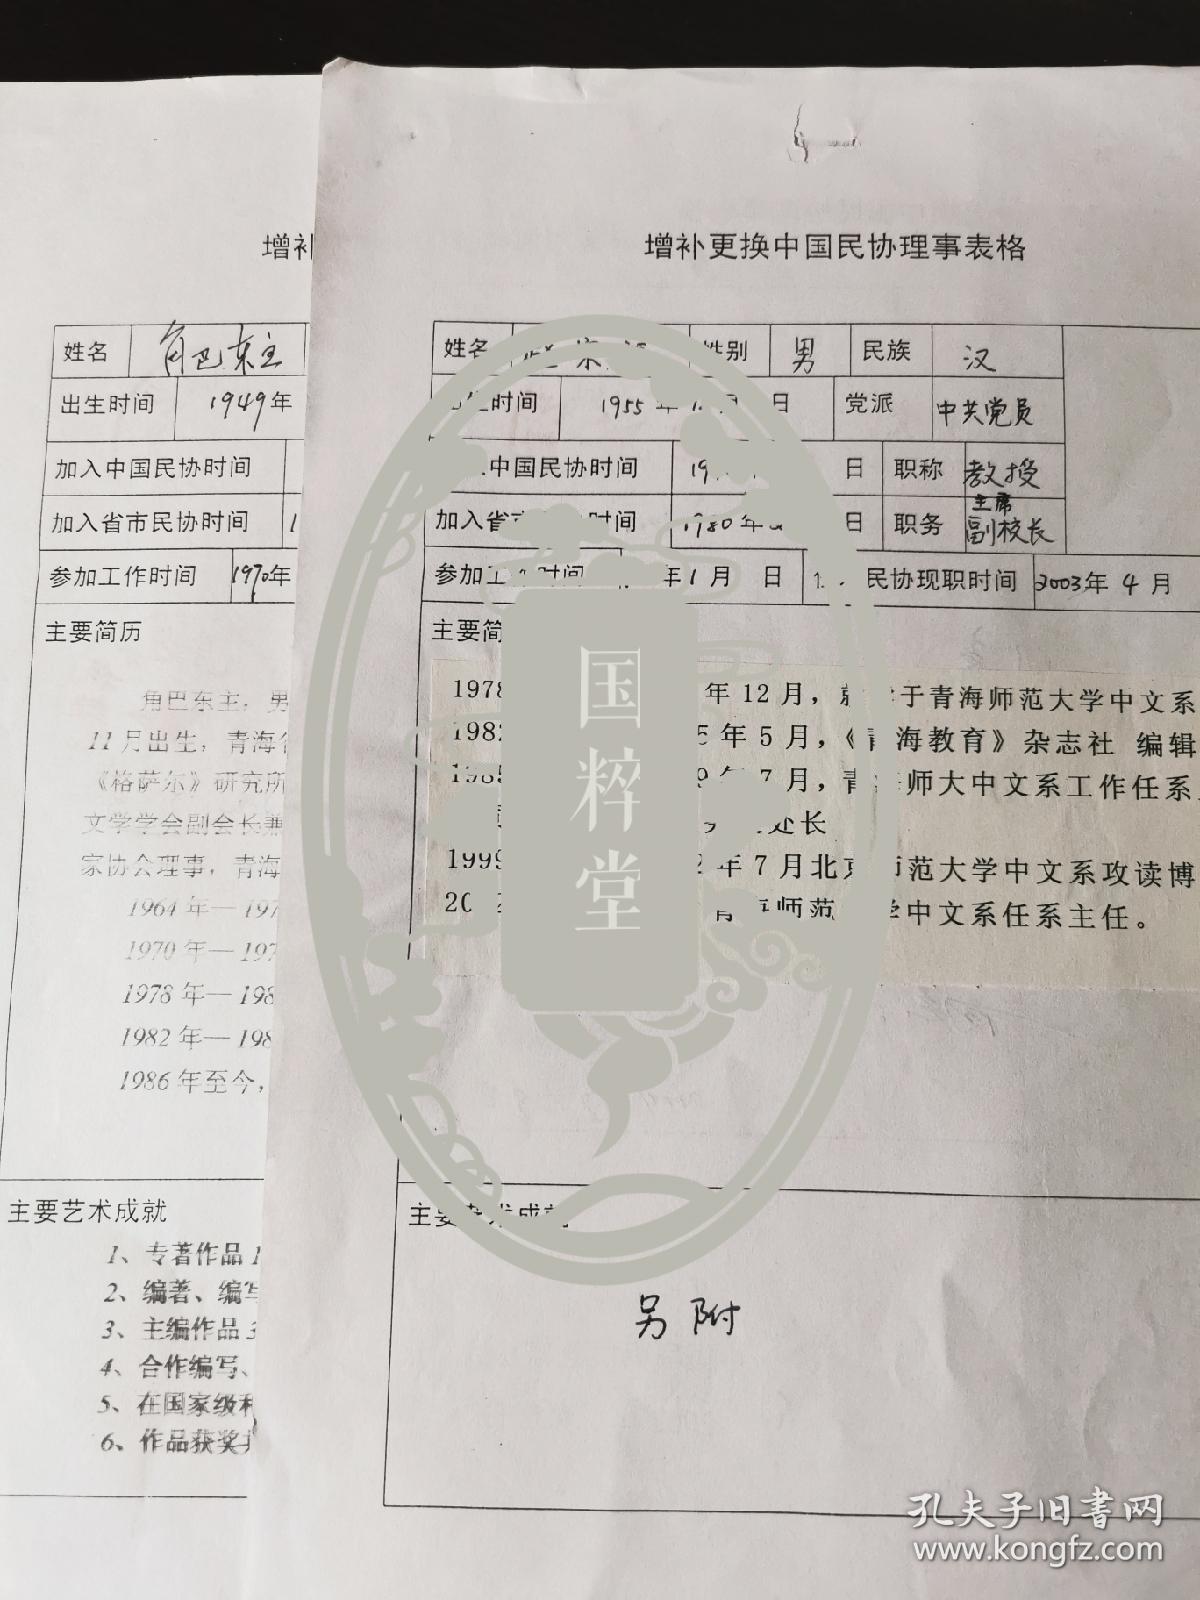 增补
姓名 角巴东主
出生时间 1949年
加入中国民协时间
加入省市民协时间
参加工作时间 1970年
主要简历
角巴东主，男
11月出生，青海
《格萨尔》研究所
文学学会副会长兼
家协会理事，青海
1964年—197
1970年—197
1978年—198
1982年—198
1986年至今，
主要艺术成就
1、专著作品1
2、编著、编写
3、主编作品3
4、合作编写、
5、在国家级
6、作品获奖
增补更换中国民协理事表格
姓名 性别 男 民族 汉
时间 1955年 月 日 党派 中共党员
中国民协时间 19 日 职称 教授
加入省 间 1980年 日 职务 主席 副校长
参加工作时间 年1月 日 民协现职时间 2003年4月
主要简
1978 年12月，就 于青海师范大学中文系
198 5年5月，《青海教育》杂志社 编辑
1985 9年7月，青 师大中文系工作任系
处长
1999 2年7月北京师范大学中文系攻读博
20 青海师范 学中文系任系主任。
主要艺术成就
另附
国粹堂
孔夫子旧书网
www.kongfz.com